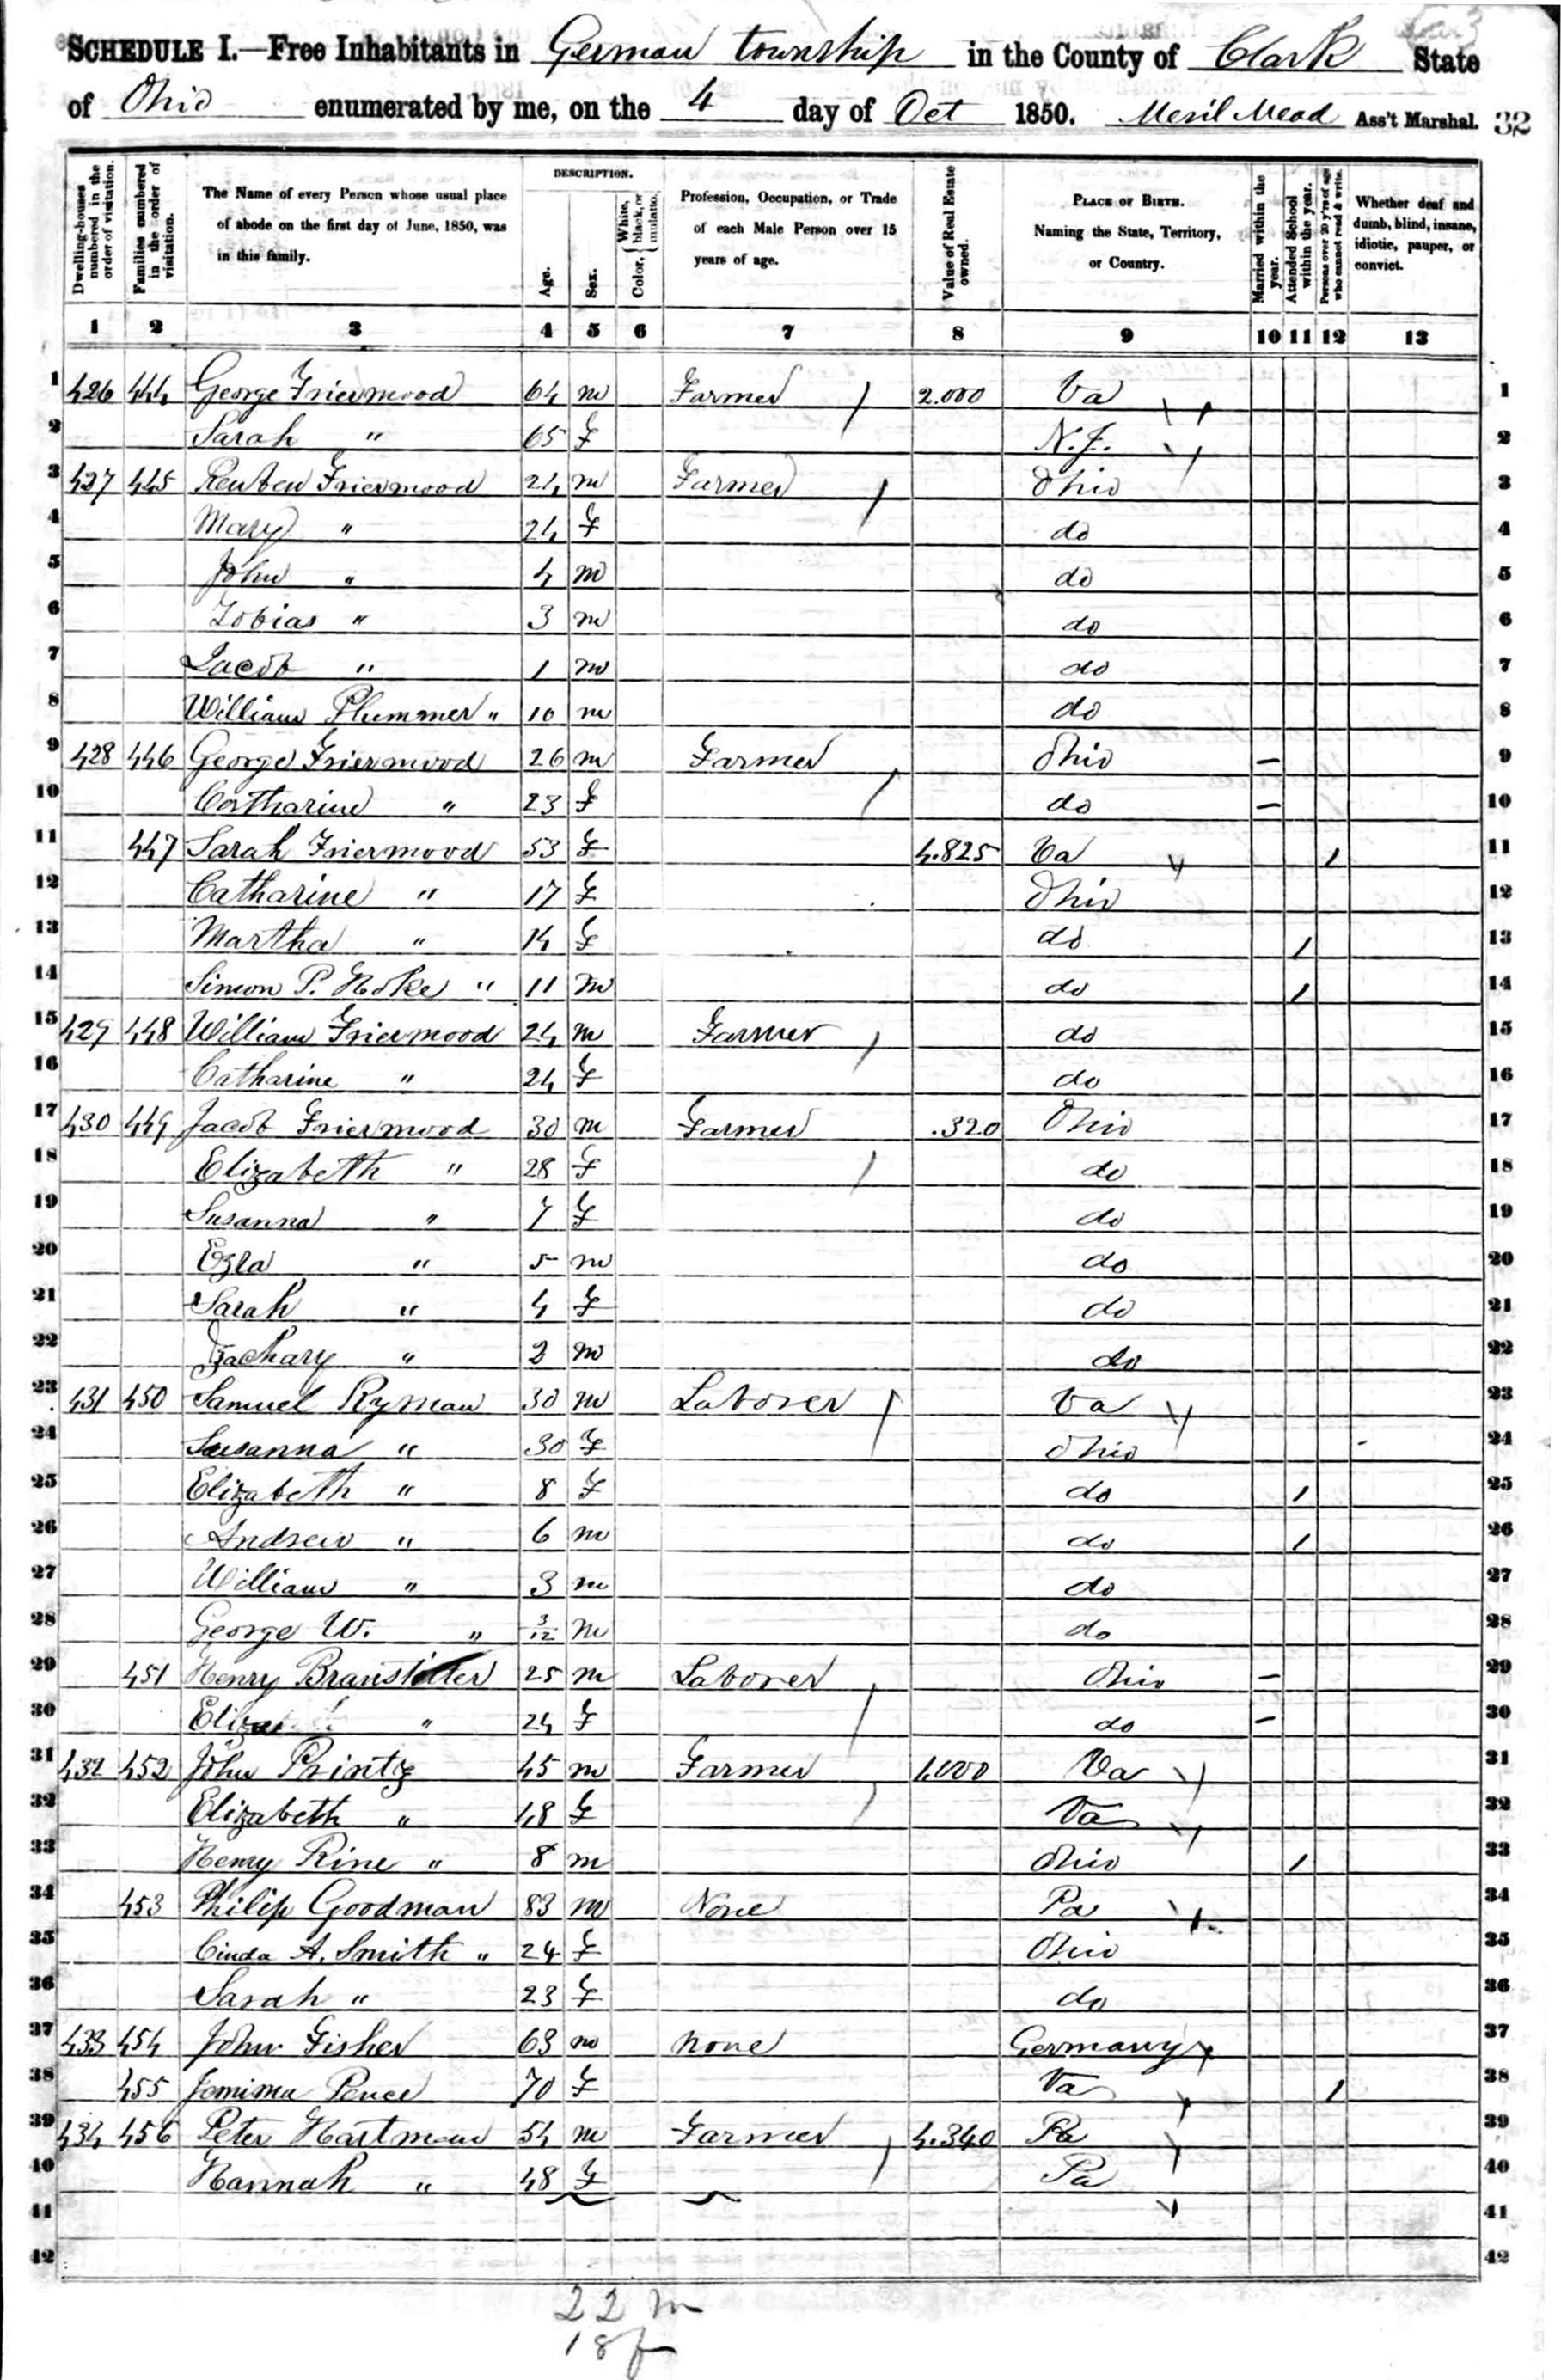 SCHEDULE I.—Free Inhabitants in German township in the County of Clark State
of Ohio enumerated by me, on the 4 day of Oct 1850. Meril Mead Ass't Marshal. 32
Dwelling-houses numbered in the order of visitation.
Families numbered in the order of visitation.
The Name of every Person whose usual place of abode on the first day of June, 1850, was in this family.
DESCRIPTION.
Age.
Sex.
Color, { White, black, or mulatto.
Profession, Occupation, or Trade of each Male Person over 15 years of age.
Value of Real Estate owned.
PLACE OF BIRTH. Naming the State, Territory, or Country.
Married within the year.
Attended School within the year.
Persons over 20 y'rs of age who cannot read & write.
Whether deaf and dumb, blind, insane, idiotic, pauper, or convict.
1 2 3 4 5 6 7 8 9 10 11 12 13
1 426 444 George Friermood 64 m Farmer 2.000 Va 1
2 Sarah " 65 f N.J. 2
3 427 445 Reuben Friermood 24 m Farmer Ohio 3
4 Mary " 24 f do 4
5 John " 4 m do 5
6 Tobias " 3 m do 6
7 Jacob " 1 m do 7
8 William Plummer " 10 m do 8
9 428 446 George Friermood 26 m Farmer Ohio — 9
10 Catharine " 23 f do — 10
11 447 Sarah Friermood 53 f 4.825 Va / 11
12 Catharine " 17 f Ohio 12
13 Martha " 14 f do / 13
14 Simon P. Hoke " 11 m do / 14
15 429 448 William Friermood 24 m Farmer do 15
16 Catharine " 24 f do 16
17 430 449 Jacob Friermood 30 m Farmer .320 Ohio 17
18 Elizabeth " 28 f do 18
19 Susanna " 7 f do 19
20 Ezra " 5 m do 20
21 Sarah " 4 f do 21
22 Zachary " 2 m do 22
23 431 450 Samuel Ryman 30 m Laborer Va 23
24 Susanna " 30 f Ohio 24
25 Elizabeth " 8 f do / 25
26 Andrew " 6 m do / 26
27 William " 3 m do 27
28 George W. " 3/12 m do 28
29 451 Henry Branstitter 25 m Laborer Ohio — 29
30 Eliza " 24 f do — 30
31 432 452 John Printz 45 m Farmer 1.000 Va 31
32 Elizabeth " 48 f Va 32
33 Henry Rine " 8 m Ohio / 33
34 453 Philip Goodman 83 m None Pa 34
35 Cinda A. Smith " 24 f Ohio 35
36 Sarah " 23 f do 36
37 433 454 John Fisher 63 m none Germany 37
38 455 Jemima Pence 70 f Va / 38
39 434 456 Peter Hartman 54 m Farmer 4.340 Pa 39
40 Hannah " 48 f Pa 40
41 41
42 42
22 m
18 f